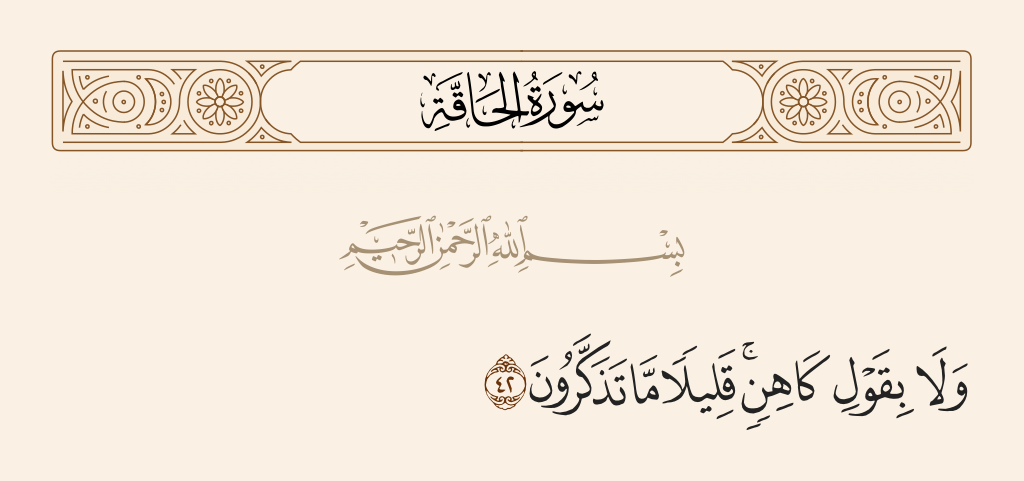 سُورَةُ الحَاقَّةِ
بِسْمِ ٱللَّهِ ٱلرَّحْمَٰنِ ٱلرَّحِيمِ
وَلَا بِقَوْلِ كَاهِنٍ ۚ قَلِيلًا مَّا تَذَكَّرُونَ ٤٢